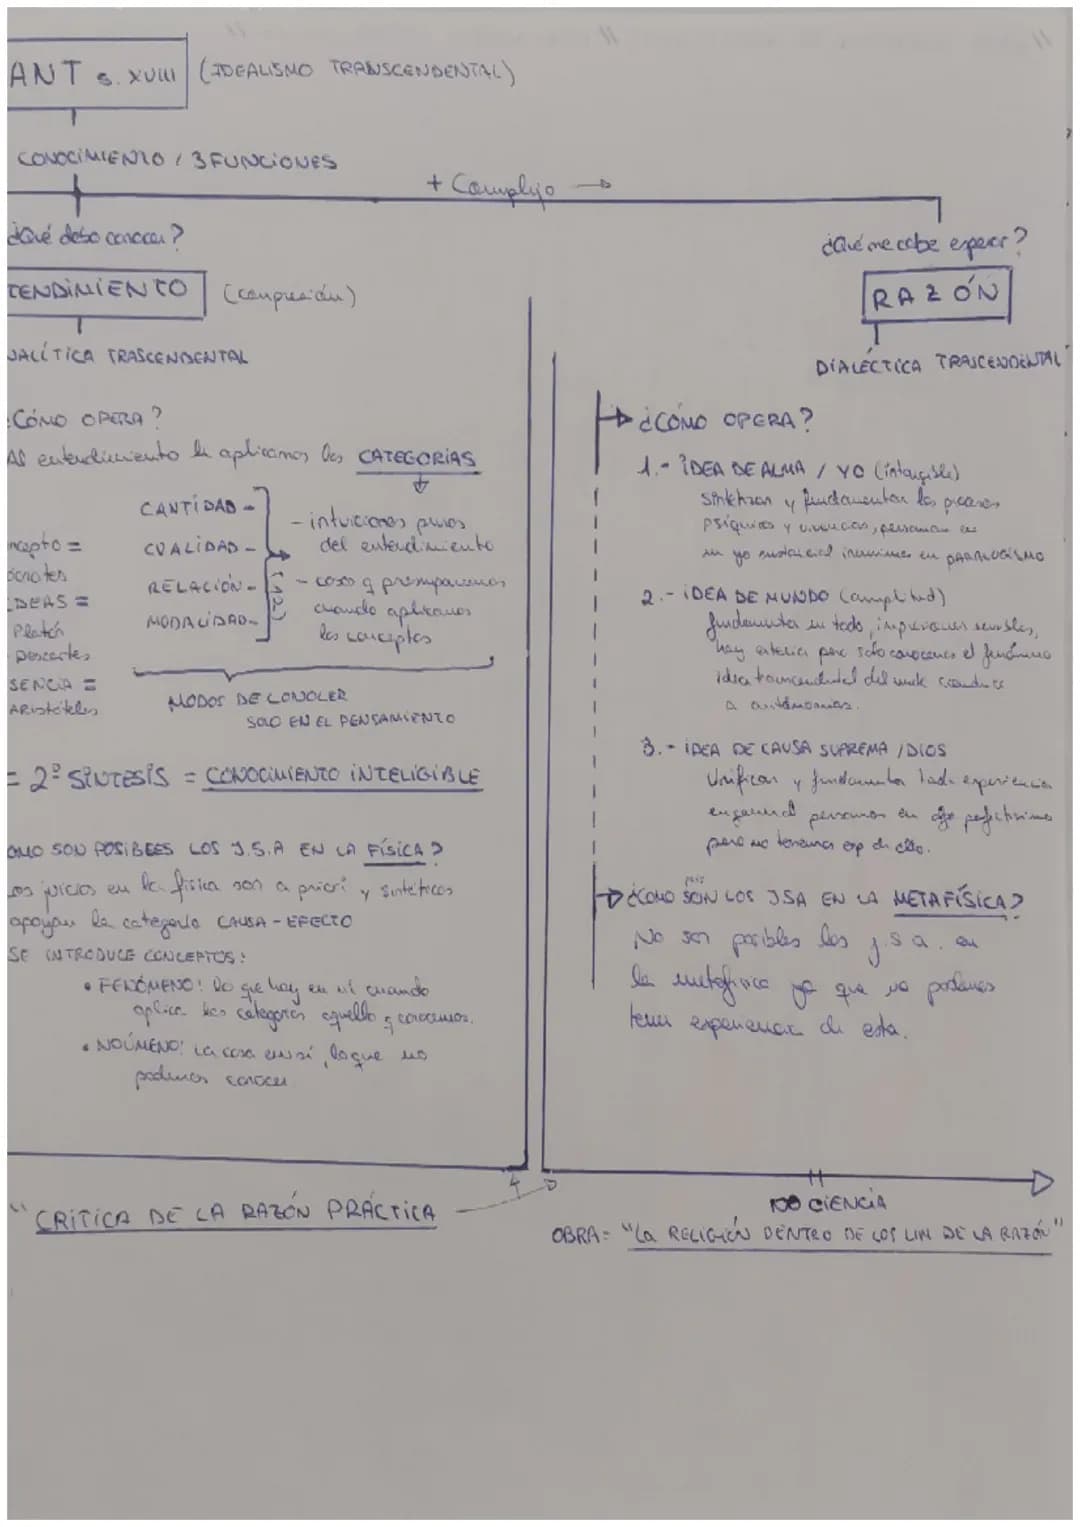 ANT s. XVIII (IDEALISMO TRANSCENDENTAL)
CONOCIMIENTO / 3 FUNCIONES
+ Complejo →
¿Qué debo conocer?
TENDIMIENTO (compresión)
NALÍTICA TRASCENDENTAL
¿CÓMO OPERA?
Al entendimiento le aplicamos las CATEGORÍAS
CANTIDAD -
CUALIDAD -
RELACIÓN -
MODALIDAD -
(12)
- intuiciones puras
del entendimiento
- cosas q
cuando aplicamos
los conceptos
ncepto =
ócrates
IDEAS =
Platón
Descartes
SENCIA =
ARistóteles
MODOS DE CONOCER
SOLO EN EL PENSAMIENTO
= 2º SINTESIS = CONOCIMIENTO INTELIGIBLE
OMO SON POSIBLES LOS J.S.A EN LA FÍSICA?
Los juicios en la física son a priori y sintéticos
apoyan la categoría CAUSA - EFECTO
SE INTRODUCE CONCEPTOS:
• FENÓMENO: lo que hay en mí cuando
aplica las categorías aquello q conocemos.
• NOÚMENO: La cosa en sí, lo que no
podemos conocer
" CRITICA DE LA RAZÓN PRÁCTICA
¿Qué me cabe esperar?
RAZÓN
DIALÉCTICA TRASCENDENTAL
¿CÓMO OPERA?
1.- IDEA DE ALMA / YO (intangible)
Sintetizan y fundamentan los procesos
psíquicos y vivencias, pensamos en
un yo sustancial PARALOGISMO
2.- IDEA DE MUNDO (amplitud)
fundamenta en todo, impresiones sensibles,
hay materia pero sólo conocemos el fenómeno
idea transcendental del conduce
a antinomias.
3.- IDEA DE CAUSA SUPREMA / DIOS
Unifican y fundamentan toda experiencia
en general pensamos en algo perfectísimo
pero no tenemos exp de ello.
¿COMO SON LOS JSA EN LA METAFÍSICA?
No son posibles los j.s a. en
la metafísica ya que no podemos
tener experiencia de esta.
NO CIENCIA
OBRA = "La RELIGIÓN DENTRO DE LOS LIM DE LA RAZÓN"